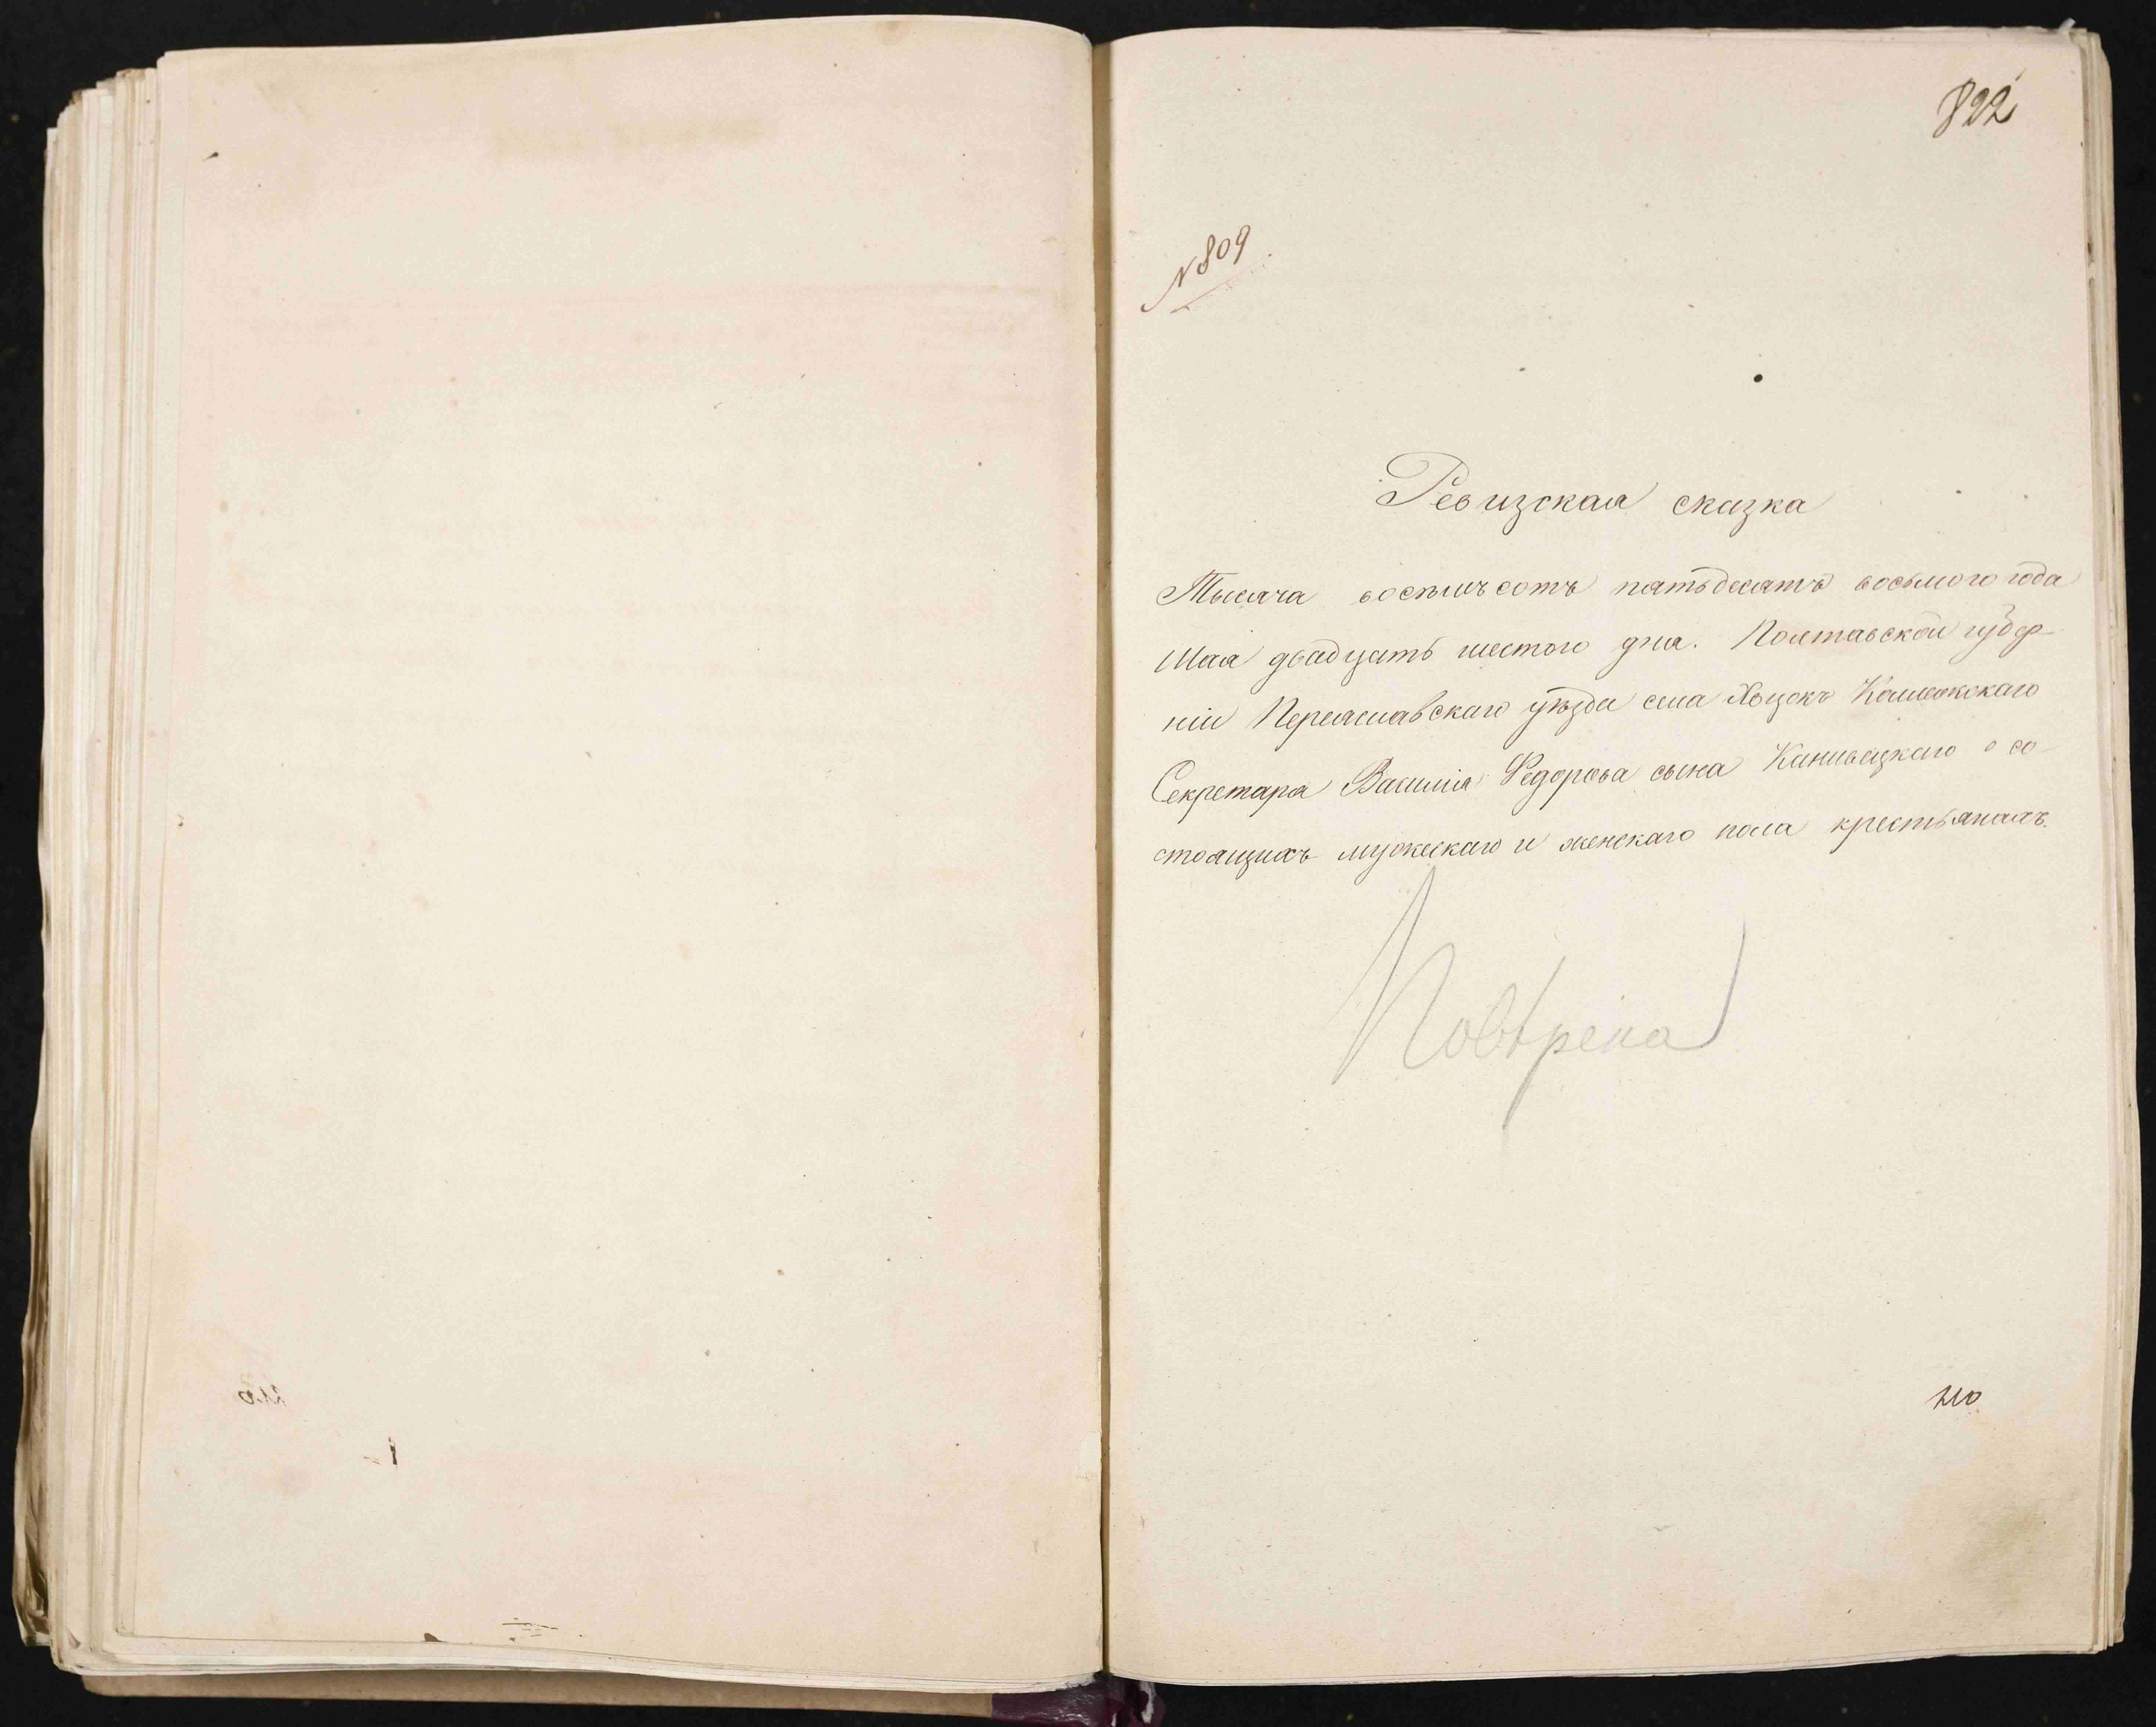 822
N 809
Ревизская сказка
Тысяча восемьсотъ пятьдесятъ восьмого года
Мая двадцать шестого дня. Полтавской губер-
ніи Переяславскаго уѣзда села Хоцекъ Коллежскаго
Секретаря Василія Федорова сына Каневецкаго о со-
стоящихъ мужескаго и женскаго пола крестьянахъ.
Повѣрена
210